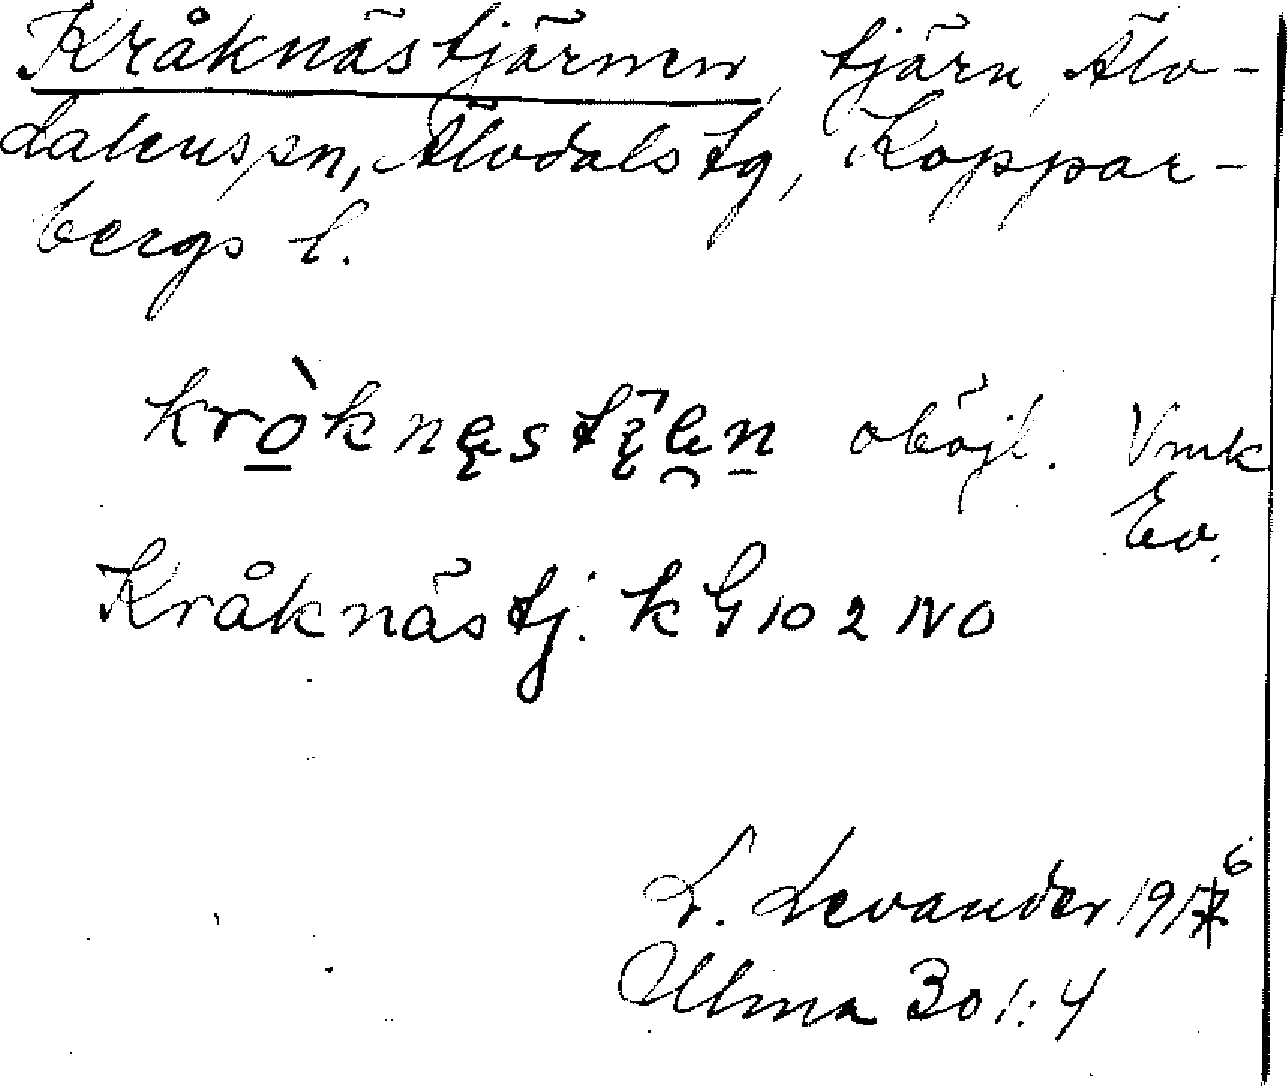 Kråknästjärnen, tjärn, Älv-
dalens sn, Älvdals tg, Koppar-
bergs l.
kròknęstį̄len oböjl. Vmk
Ev.
Kråknästj. k G 10 2 NO
L. Levander 1916
Ulma 301:4